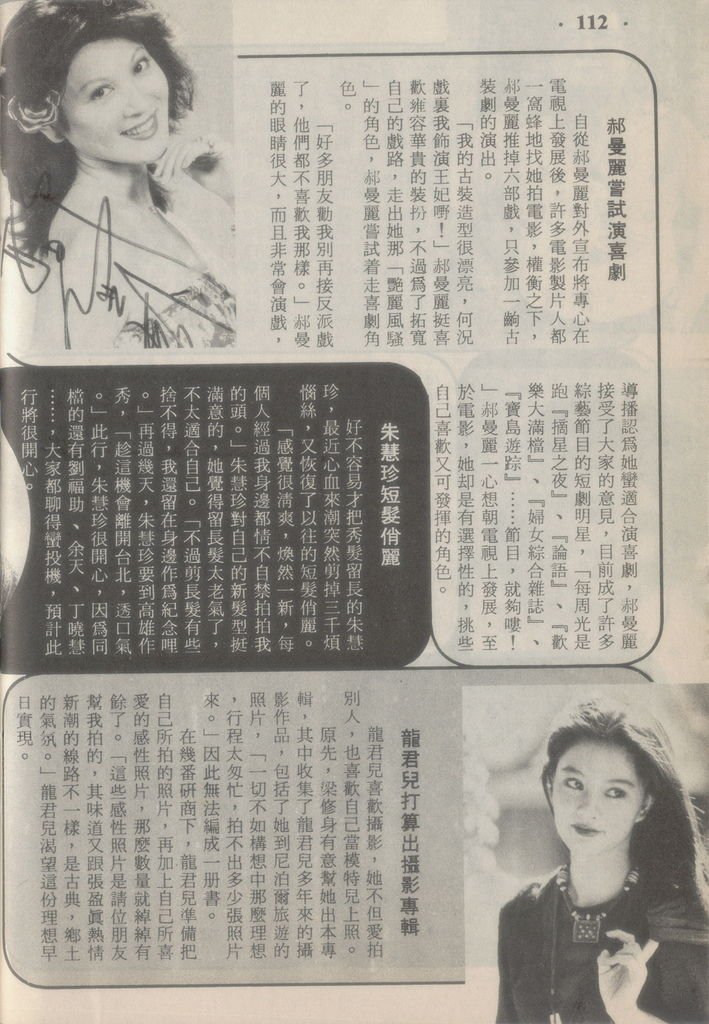 · 112 ·
郝曼麗嘗試演喜劇
自從郝曼麗對外宣布將專心在
電視上發展後，許多電影製片人都
一窩蜂地找她拍電影，權衡之下，
郝曼麗推掉六部戲，只參加一齣古
裝劇的演出。
「我的古裝造型很漂亮，何況
戲裏我飾演王妃嘢！」郝曼麗挺喜
歡雍容華貴的裝扮，不過爲了拓寬
自己的戲路，走出她那「艷麗風騷
」的角色，郝曼麗嘗試着走喜劇角
色。
「好多朋友勸我別再接反派戲
了，他們都不喜歡我那樣。」郝曼
麗的眼睛很大，而且非常會演戲，
導播認爲她蠻適合演喜劇，郝曼麗
接受了大家的意見，目前成了許多
綜藝節目的短劇明星，「每周光是
跑『摘星之夜』、『論語』、『歡
樂大滿檔』、『婦女綜合雜誌』、
『寶島遊踪』……節目，就夠嘍！
」郝曼麗一心想朝電視上發展，至
於電影，她却是有選擇性的，挑些
自己喜歡又可發揮的角色。
朱慧珍短髮俏麗
好不容易才把秀髮留長的朱慧
珍，最近心血來潮突然剪掉三千煩
惱絲，又恢復了以往的短髮俏麗。
「感覺很清爽，煥然一新，每
個人經過我身邊都情不自禁拍拍我
的頭。」朱慧珍對自己的新髮型挺
滿意的，她覺得留長髮太老氣了，
不太適合自己。「不過剪長髮有些
捨不得，我還留在身邊作爲紀念哩
。」再過幾天，朱慧珍要到高雄作
秀，「趁這機會離開台北，透口氣
。」此行，朱慧珍很開心，因爲同
檔的還有劉福助、余天、丁曉慧
……，大家都聊得蠻投機，預計此
行將很開心。
龍君兒打算出攝影專輯
龍君兒喜歡攝影，她不但愛拍
別人，也喜歡自己當模特兒上照。
原先，梁修身有意幫她出本專
輯，其中收集了龍君兒多年來的攝
影作品，包括了她到尼泊爾旅遊的
照片，「一切不如構想中那麼理想
，行程太匆忙，拍不出多少張照片
來。」因此無法編成一册書。
在幾番研商下，龍君兒準備把
自己所拍的照片，再加上自己所喜
愛的感性照片，那麼數量就綽綽有
餘了。「這些感性照片是請位朋友
幫我拍的，其味道又跟張盈眞熱情
新潮的線路不一樣，是古典，鄉土
的氣氛。」龍君兒渴望這份理想早
日實現。